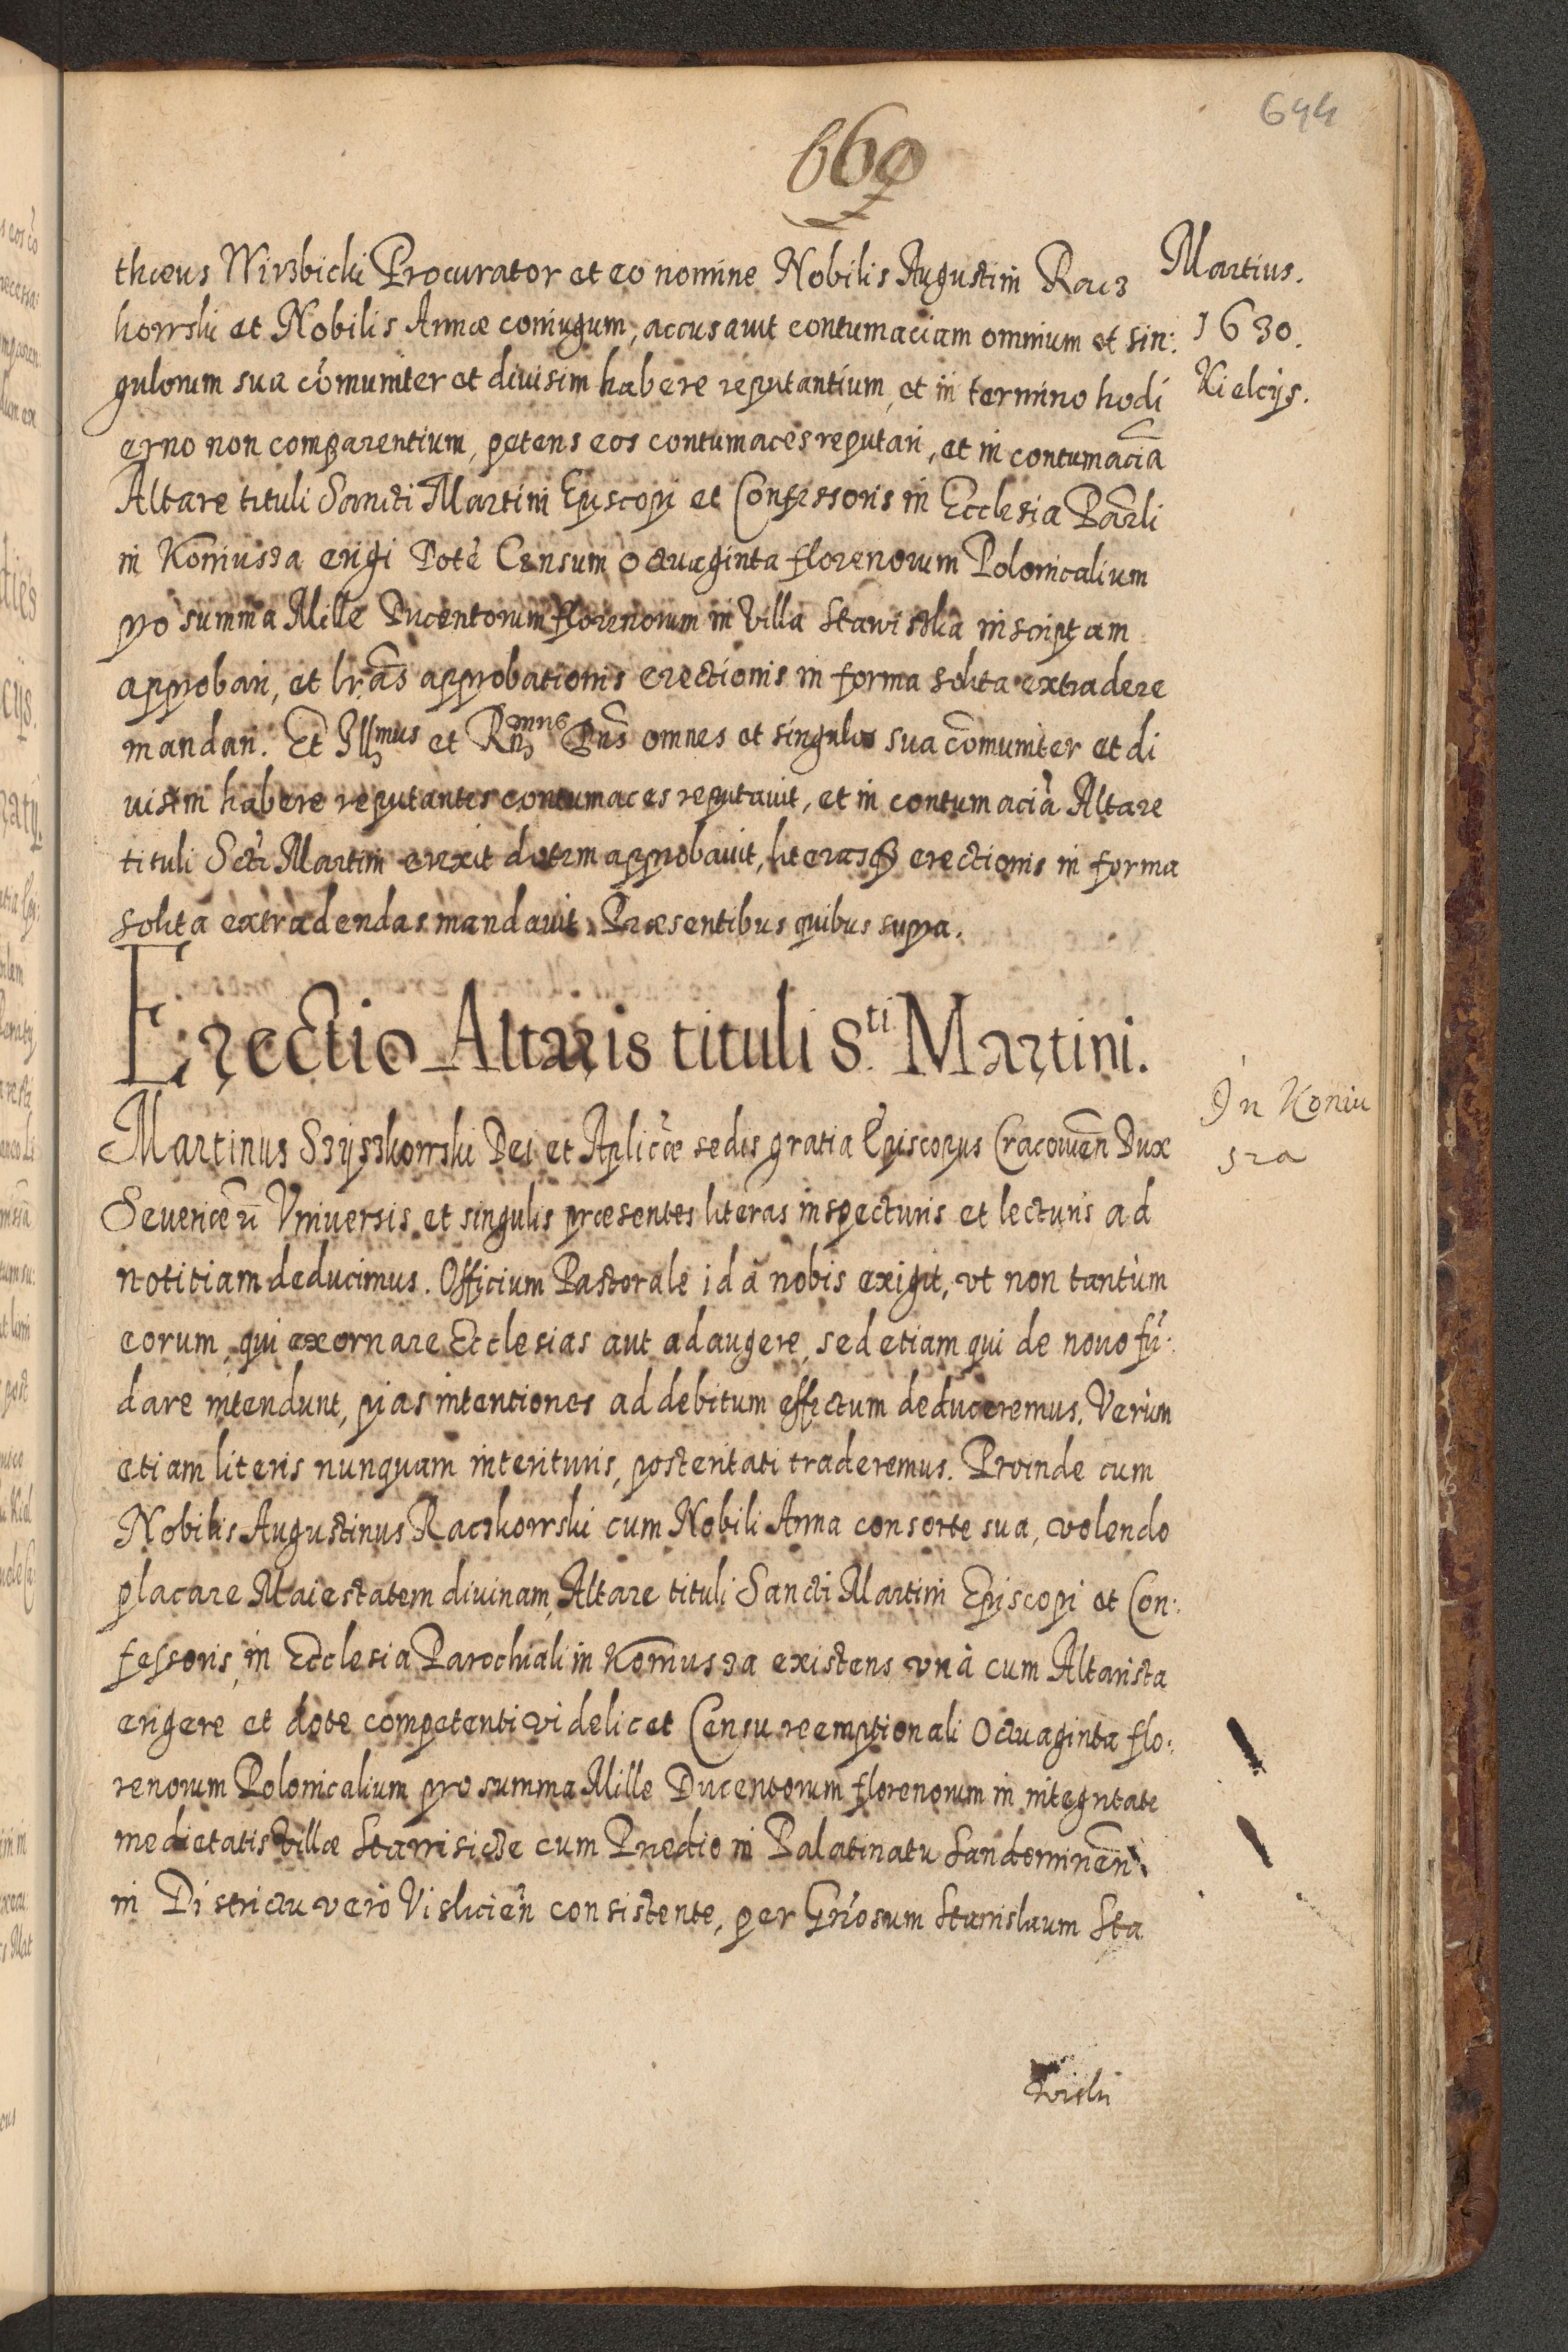 644
660
thæus Wirzbicki Procurator et eo nomine Nobilis Augustini Racz
kowski et Nobilis Annæ coniugum, accusauit contumaciam omnium et sin:
gulorum sua cõmuniter et diuisim habere reputantium, et in termino hodi
erno non comparentium, petens eos contumaces reputari, et in contumaciã
Altare tituli Sancti Martini Episcopi et Confessoris in Ecclesia Parli
in Koniusza erigi Dotẽ Censum octuaginta florenorum Polonicalium
pro summa Mille Ducentorum florenorum in Villa Stawiszka inscriptam
approbari, et lrãs approbationis erectionis in forma solita extradere
mandari. Et Illmus et Rñmus Dñs omnes et singulos sua cõmuniter et di
uisim habere reputantes contumaces reputauit, et in contumaciã Altare
tituli Scti Martini erexit dotem approbauit, literasq₃ erectionis in forma
solita extradendas mandauit. Præsentibus quibus supra.
Martius.
1630.
Kielcijs.
Erectio Altaris tituli S.ti Martini.
In Koniu
sza
Martinus Szyszkowski Dei et Aplicæ sedis gratia Episcopus Cracouieñ Dux
Seueriæñ Vniuersis et singulis præsentes literas inspecturis et lecturis ad
notitiam deducimus. Officium Pastorale id à nobis exigit, vt non tantùm
eorum, qui exornare Ecclesias aut adaugere, sed etiam qui de nouo fũ:
dare intendunt, pias intentiones ad debitum effectum deduceremus. Verùm
etiam literis nunquam interituris, posteritati traderemus. Proinde cum
Nobilis Augustinus Raczkowski cum Nobili Anna consorte sua, volendo
placare Maiestatem diuinam, Altare tituli Sancti Martini Episcopi et Con:
fessoris, in Ecclesia Parochiali in Koniusza existens vnà cum Altarista
erigere et dote competenti videlicet Censu reemptionali Octuaginta flo:
renorum Polonicalium pro summa Mille Ducentorum florenorum in integritate
medietatis Villæ cum Prædio in Palatinatu Sandomirieñ
in Districtu verò Visliciеñ consistente, per Gñosum Stanislaum Sta
wiski